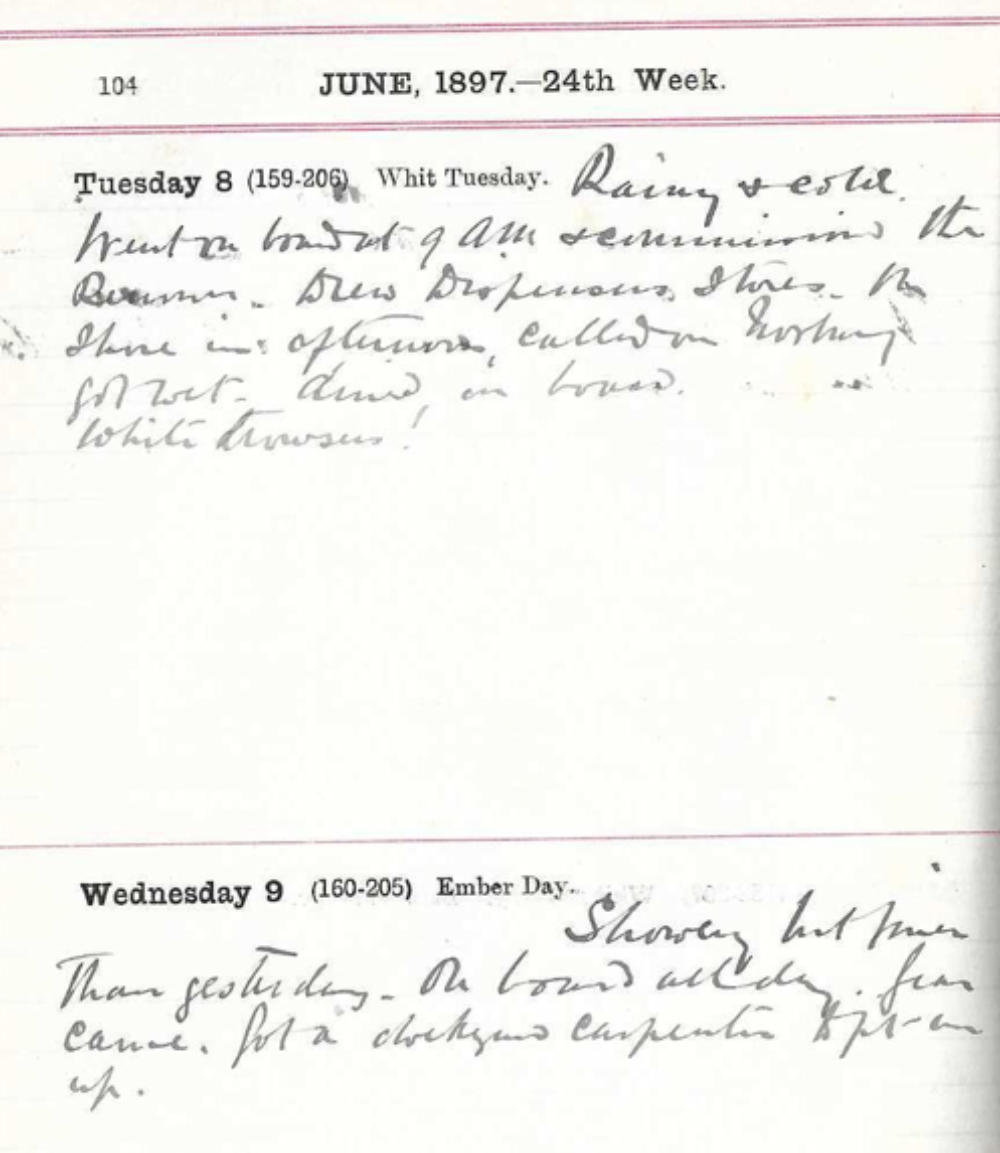 104 JUNE, 1897.—24th Week.
Tuesday 8 (159-206) Whit Tuesday. Rainy & cold.
Went on board at 9 AM & commissioned the
Drew Dispensers Stores. On
Shore in afternoon, called on
got wet - dined, on board.
White trowsers!
Wednesday 9 (160-205) Ember Day.
Showery but finer
Than yesterday - On board all day. Gear
came. Got a dockyard carpenter to put
up.